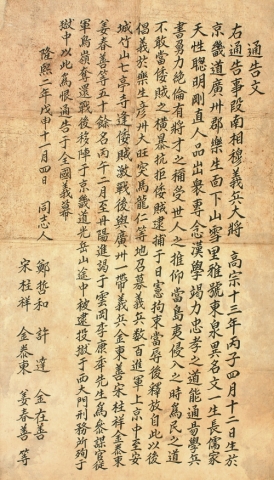 通告文
右通告事段南相穆義兵大將 高宗十三年丙子四月十二日生於
京畿道廣州郡樂生面下山雲里雅號東泉異名文一生長儒家
天性聰明剛直人品出衆專念漢學竭力忠孝之道能通易學兵
書勇力絶倫有將才之稱受世人之推仰當島夷侵入之時爲民之道
不敢當倭賊之橫暴抗拒倭賊逮捕于日憲拘束當辱後釋放自此以後
倡義於樂生彦州大旺突馬龍仁等地召募義兵數百進軍上京中至安
城竹山七亭寺逢倭賊激戰後與廣州一帶義兵金東善宋桂祥金泰東
姜春善等五十餘名丙午二月至丹陽進謁于雲岡李康秊先生爲參謀官從
軍鳥嶺奪還戰後移陣于京畿道光岳山途中被逮投獄于西大門刑務所殉于
獄中以此爲恨通告于全國義幕
隆熙二年戊申十一月四日 同志人
鄭哲和 許遠 金在善
宋桂祥 金泰東 姜春善 等